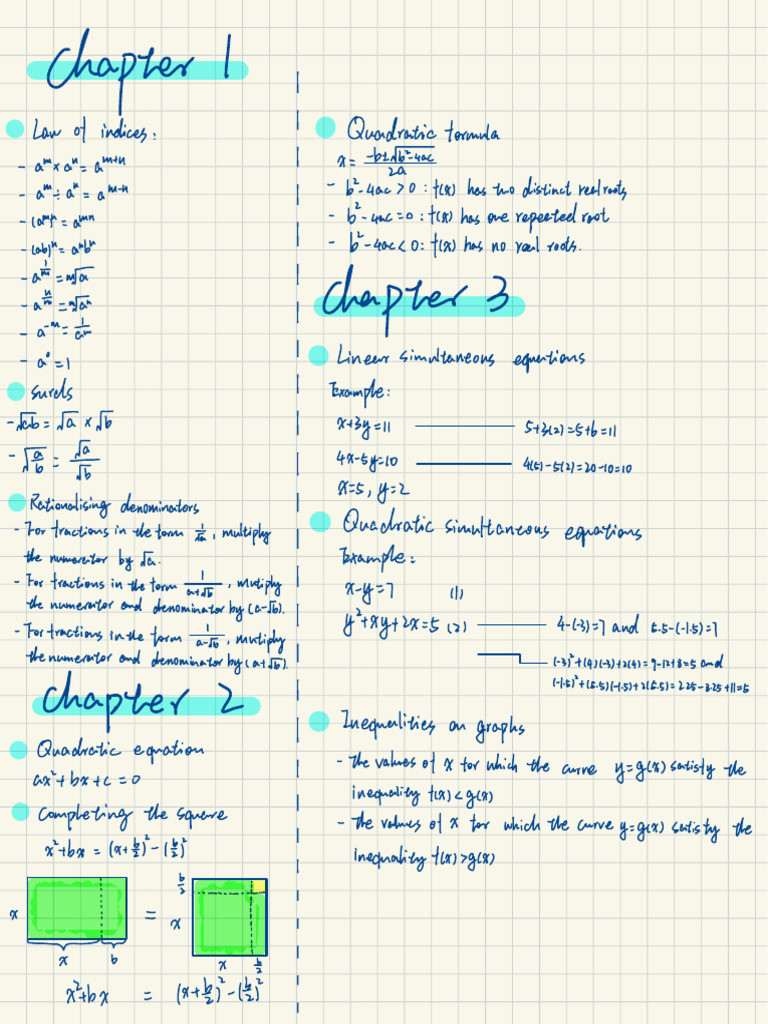 Chapter 1
Law of indices:
- aᵐ × aⁿ = aᵐ⁺ⁿ
- aᵐ ÷ aⁿ = aᵐ⁻ⁿ
- (aᵐ)ⁿ = aᵐⁿ
- (ab)ⁿ = aⁿbⁿ
- a^(1/m) = ᵐ√a
- a^(n/m) = ᵐ√aⁿ
- a⁻ᵐ = 1/aᵐ
- a⁰ = 1
surds
- √ab = √a × √b
- √(a/b) = √a/√b
Rationalising denominators
- For fractions in the form 1/√a, multiply
the numerator by √a.
- For fractions in the form 1/(a+√b), multiply
the numerator and denominator by (a-√b).
- For fractions in the form 1/(a-√b), multiply
the numerator and denominator by (a+√b).
Chapter 2
Quadratic equation
ax²+bx+c=0
Completing the square
x²+bx = (x+b/2)² - (b/2)²
x
x
b
=
b/2
x
x
b/2
x²+bx = (x+b/2)² - (b/2)²
Quadratic formula
x = (-b±√(b²-4ac))/2a
- b²-4ac>0: f(x) has two distinct real roots
- b²-4ac=0: f(x) has one repeated root
- b²-4ac<0: f(x) has no real roots.
Chapter 3
Linear simultaneous equations
Example:
x+3y=11 5+3(2)=5+6=11
4x-5y=10 4(5)-5(2)=20-10=10
x=5, y=2
Quadratic simultaneous equations
Example:
x-y=7 (1)
y²+xy+2x=5 (2) 4-(-3)=7 and 5.5-(-1.5)=7
(-3)²+(4)(-3)+2(4)=9-12+8=5 and
(-1.5)²+(5.5)(-1.5)+2(5.5)=2.25-8.25+11=5
Inequalities on graphs
- the values of x for which the curve y=g(x) satisfy the
inequality f(x)<g(x)
- the values of x for which the curve y=g(x) satisfy the
inequality f(x)>g(x)